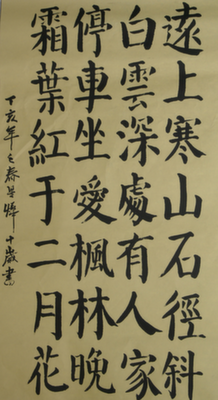 遠上寒山石徑斜
白雲深處有人家
停車坐愛楓林晚
霜葉紅于二月花
丁亥年之春
十歲書